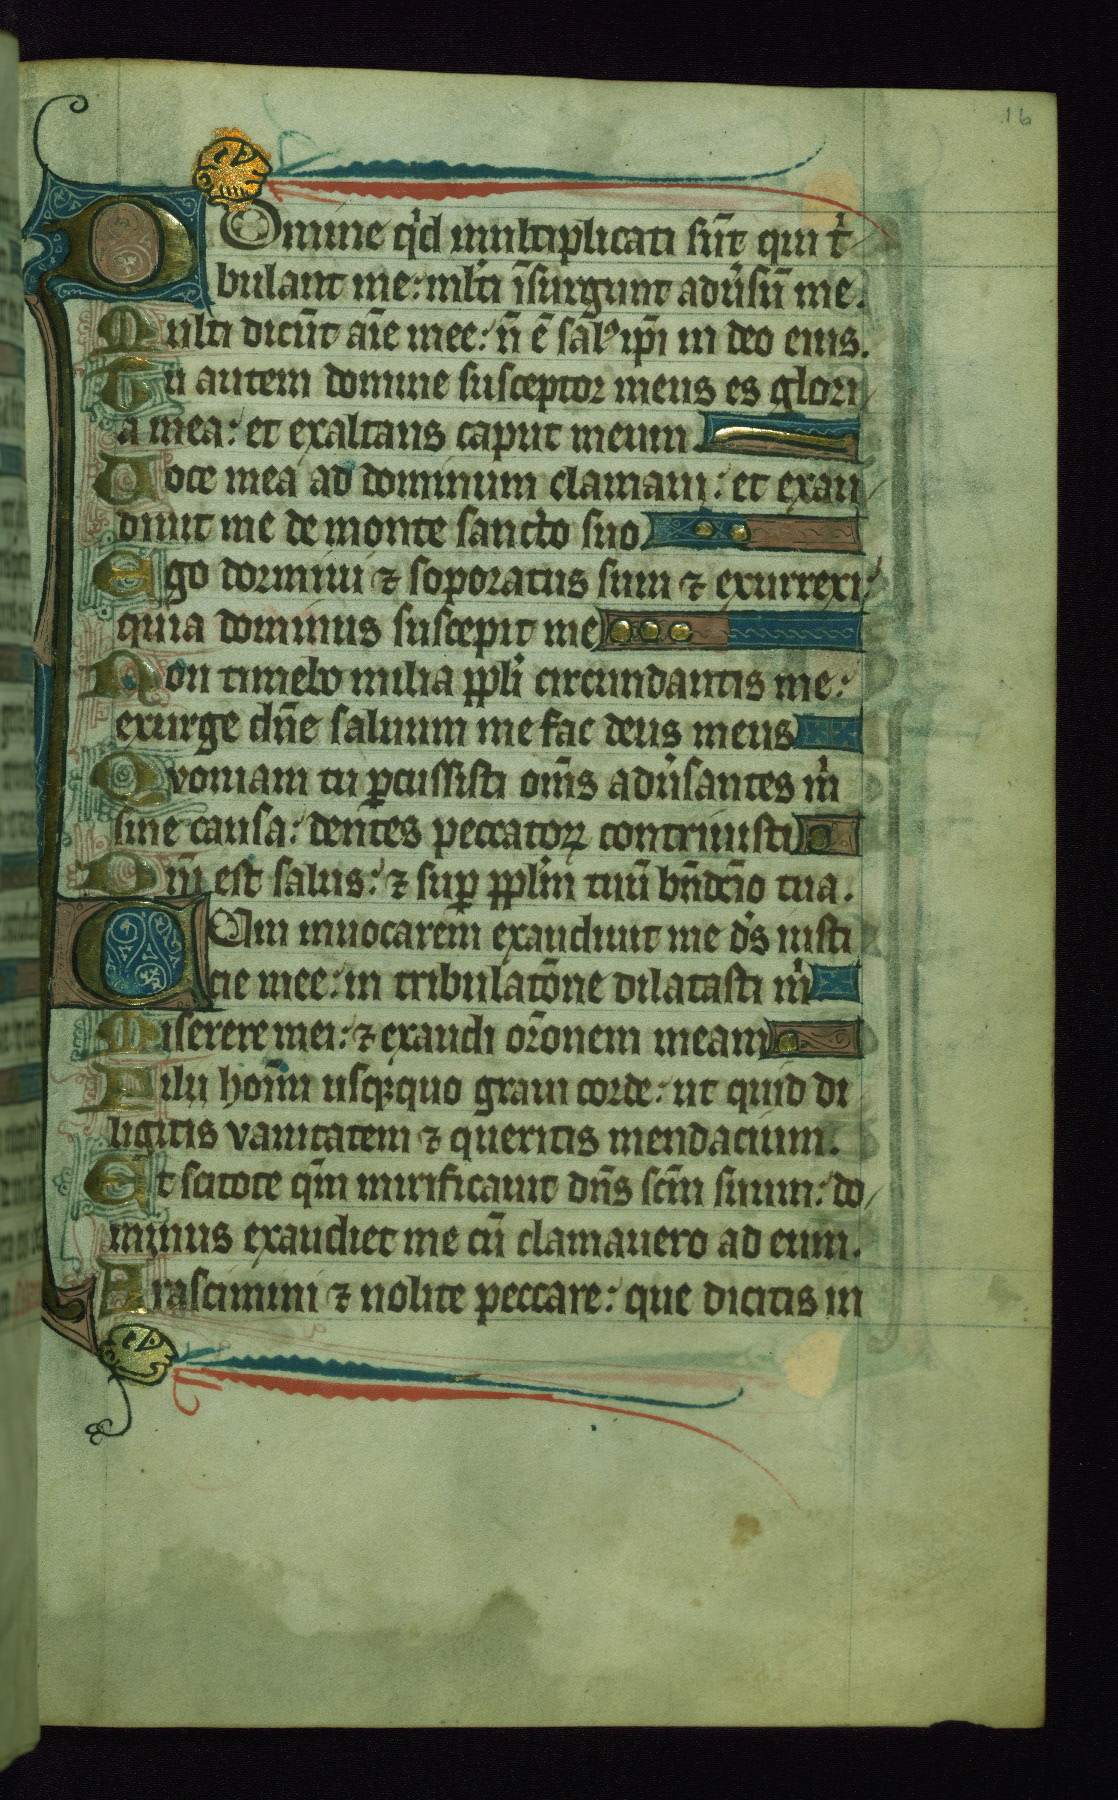 16
Domine qͥd multiplicati sūt qui tͥ
bulant me: mlti īsurgunt adūsū me.
Multi dicūt aīe mee: n̄ ē sal᷒ ip̄i in deo eius.
Tu autem domine susceptor meus es glori
a mea: et exaltans caput meum
Voce mea ad dominum clamaui: et exau
diuit me de monte sancto suo
Ego dormiui ⁊ soporatus sum ⁊ exurrexi:
quia dominus suscepit me
Non timebo milia ppli circundantis me:
exurge dn̄e saluum me fac deus meus
Quoniam tu ꝑcussisti om̄s adūsantes m̄
sine causa: dentes peccatoꝝ contriuisti
Dn̄i est salus: ⁊ suꝑ pplm̄ tuū bn̄dcīo tua.
Cum inuocarem exaudiuit me ds̄ iusti
cie mee: in tribulatōne dilatasti m̄
Miserere mei: ⁊ exaudi or̄onem meam
Filii hoīm usqꝫquo graui corde: ut quid di
ligitis vanitatem ⁊ queritis mendacium.
Et scitote qm̄ mirificauit dn̄s scm̄ suum: do
minus exaudiet me cū clamauero ad eum.
Irascimini ⁊ nolite peccare: que dicitis in